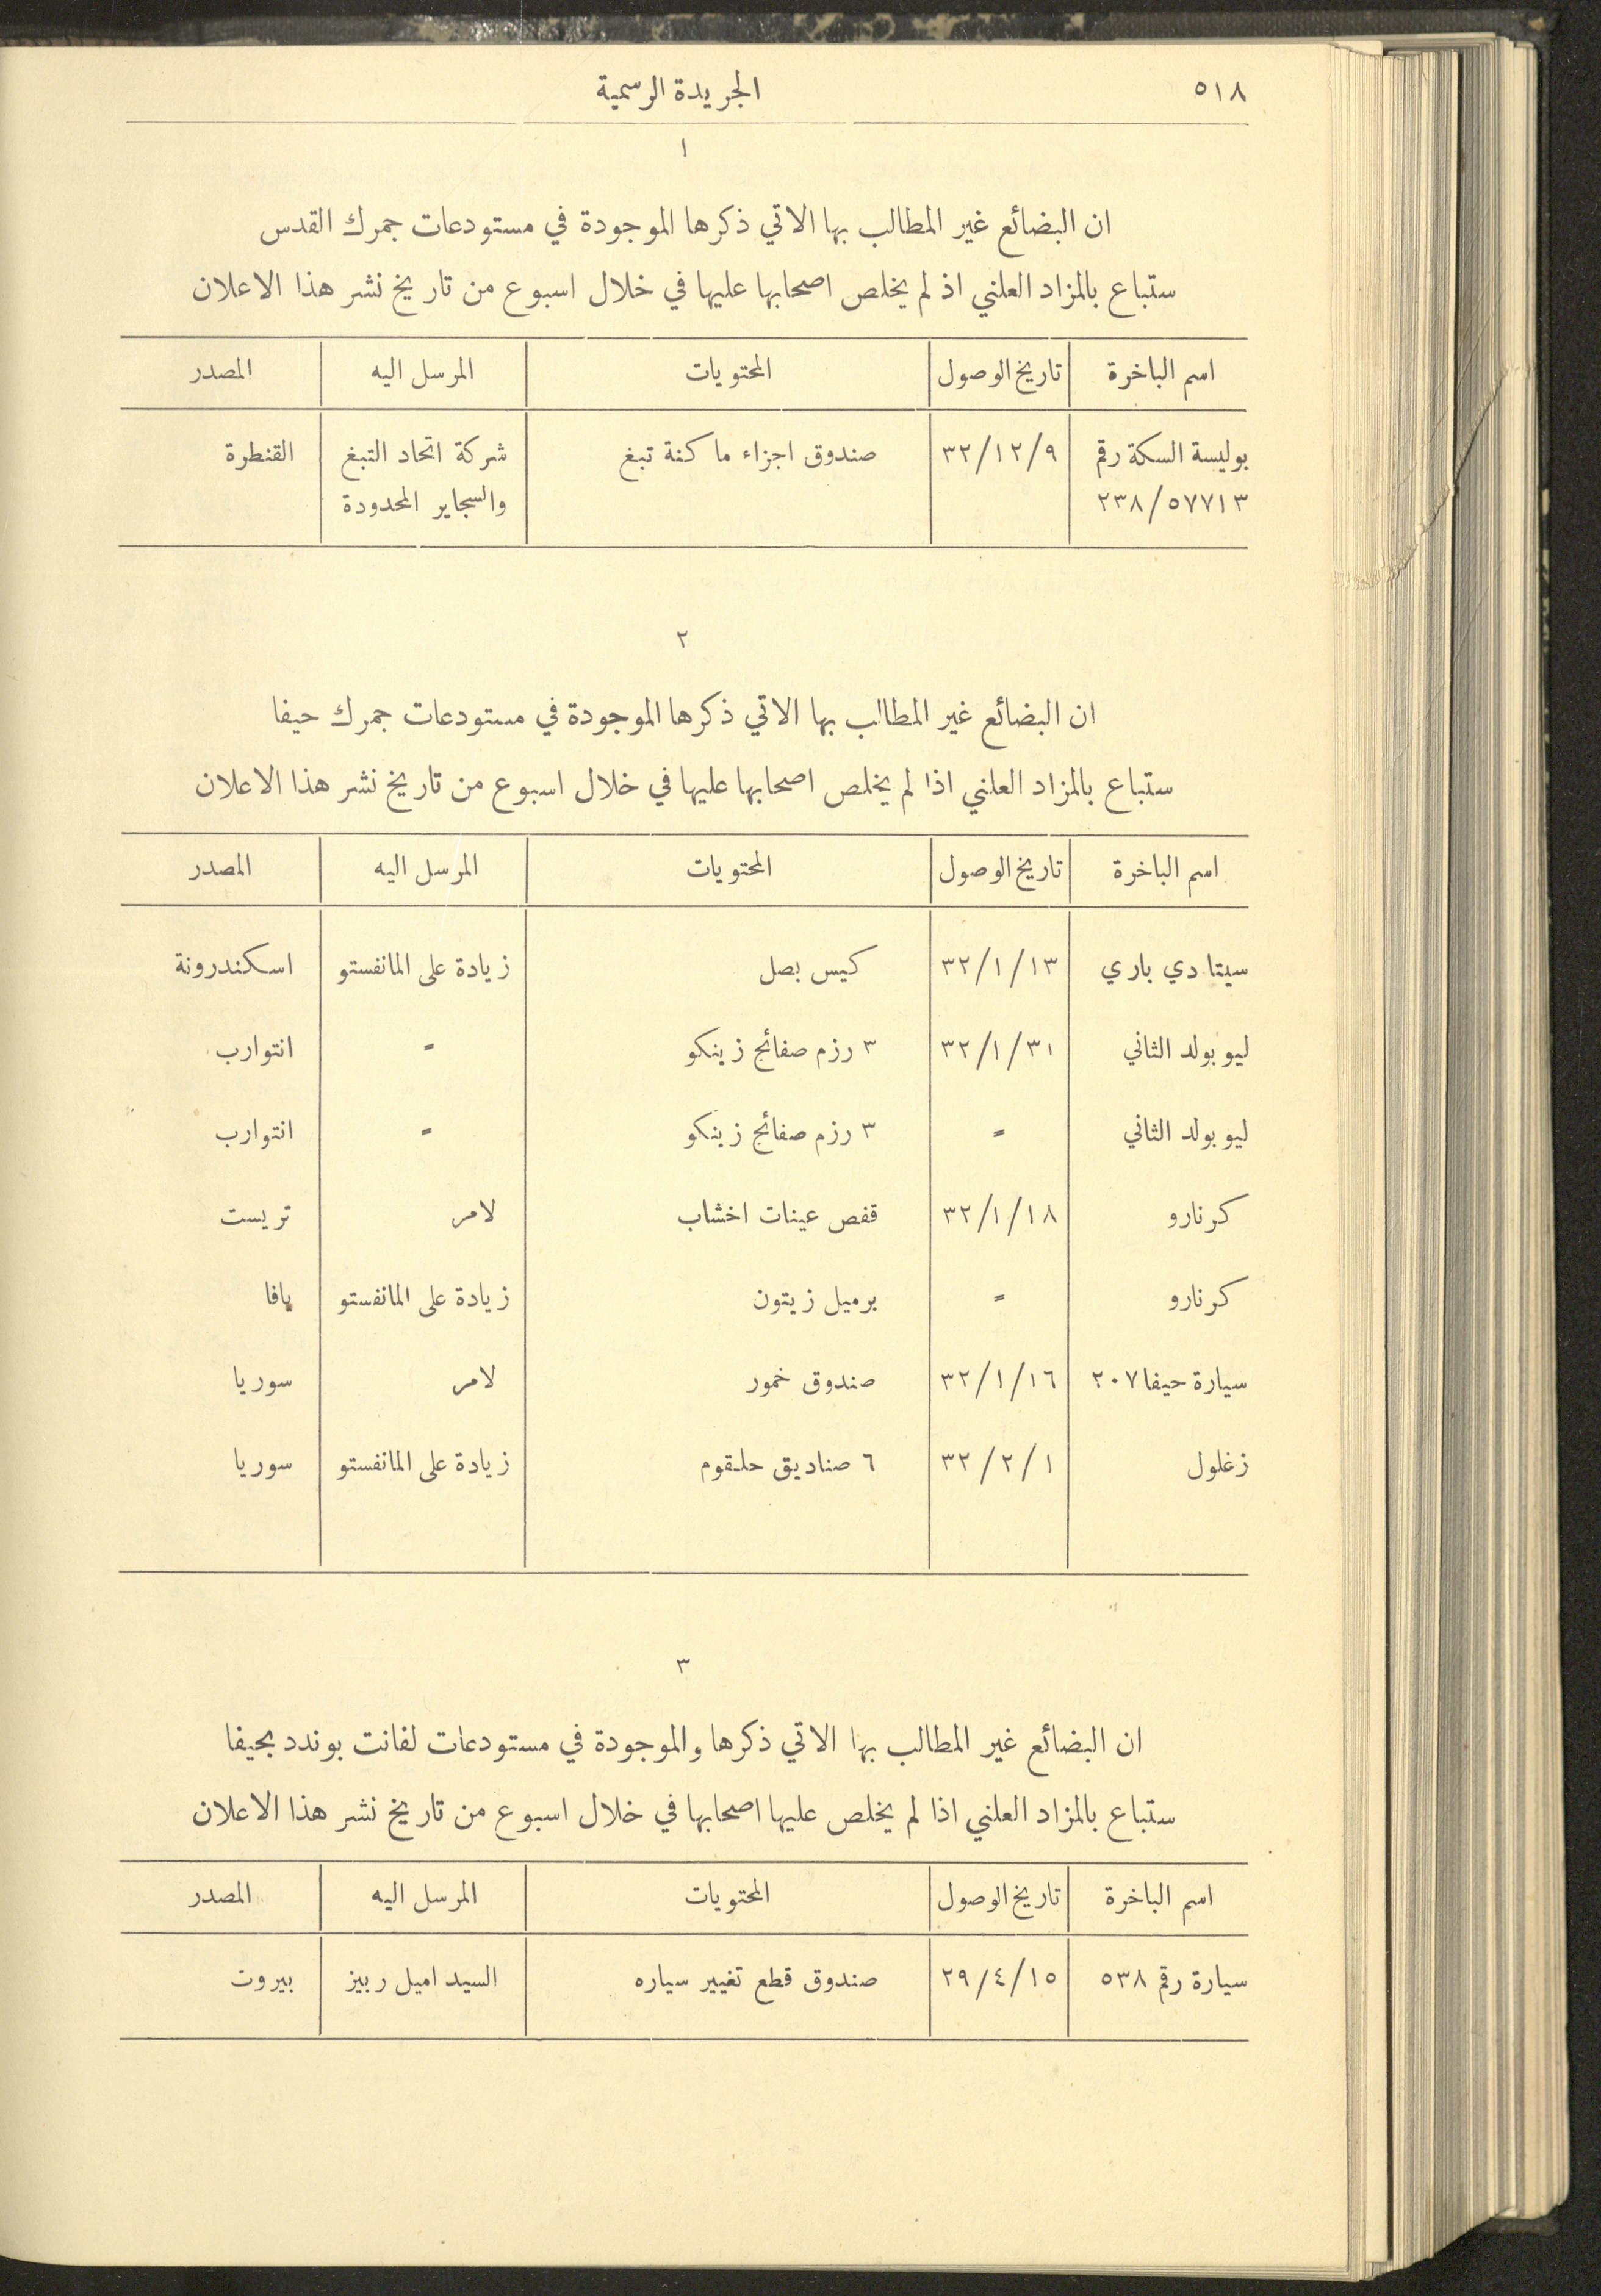 ٥١٨
الجريدة الرسمية
١
ان البضائع غير المطالب بها الاتي ذكرها الموجودة في مستودعات جمرك القدس
ستباع بالمزاد العلني اذ لم يخلص اصحابها عليها في خلال اسبوع من تاريخ نشر هذا الاعلان
اسم الباخرة تاريخ الوصول المحتويات المرسل اليه المصدر
بوليسة السكة رقم ٣٢/١٢/٩ صندوق اجزاء ماكنة تبغ شركة اتحاد التبغ القنطرة
٢٣٨/٥٧٧١٣ والسجاير المحدودة
٢
ان البضائع غير المطالب بها الاتي ذكرها الموجودة في مستودعات جمرك حيفا
ستباع بالمزاد العلني اذا لم يخلص اصحابها عليها في خلال اسبوع من تاريخ نشر هذا الاعلان
اسم الباخرة تاريخ الوصول المحتويات المرسل اليه المصدر
سيتا دي باري ٣٢/١/١٣ كيس بصل زيادة على المانفستو اسكندرونة
ليوبولد الثاني ٣٢/١/٣١ ٣ رزم صفائح زينكو = انتوارب
ليوبولد الثاني = ٣ رزم صفائح زينكو = انتوارب
كرنارو ٣٢/١/١٨ قفص عينات اخشاب لامر تريست
كرنارو = برميل زيتون زيادة على المانفستو يافا
سيارة حيفا ٢٠٧ ٣٢/١/١٦ صندوق خمور لامر سوريا
زغلول ٣٢/٢/١ ٦ صناديق حلقوم زيادة على المانفستو سوريا
٣
ان البضائع غير المطالب بها الاتي ذكرها والموجودة في مستودعات لفانت بوندد بحيفا
ستباع بالمزاد العلني اذا لم يخلص عليها اصحابها في خلال اسبوع من تاريخ نشر هذا الاعلان
اسم الباخرة تاريخ الوصول المحتويات المرسل اليه المصدر
سيارة رقم ٥٣٨ ٢٩/٤/١٥ صندوق قطع تغيير سياره السيد اميل ربيز بيروت